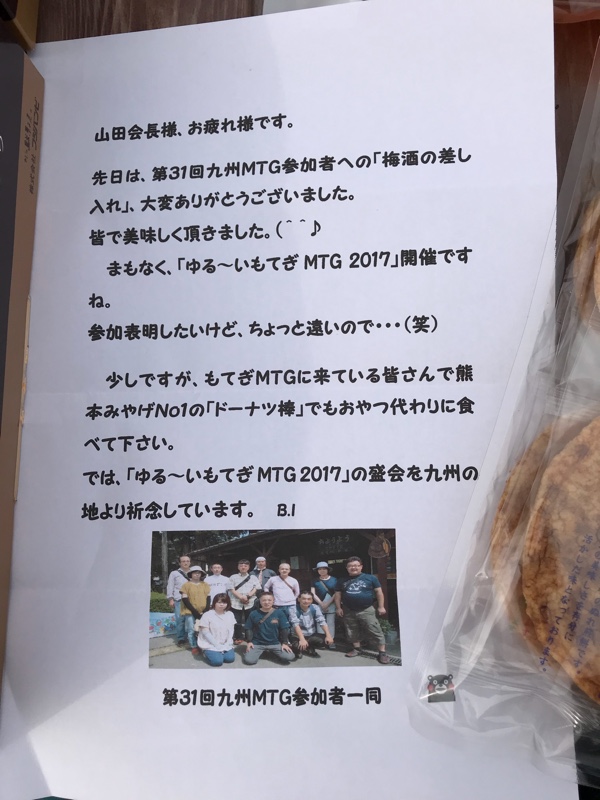 山田会長様、お疲れ様です。
先日は、第31回九州MTG参加者への「梅酒の差し
入れ」、大変ありがとうございました。
皆で美味しく頂きました。(＾＾♪
まもなく、「ゆる～いもてぎ MTG 2017」開催です
ね。
参加表明したいけど、ちょっと遠いので・・・（笑）
少しですが、もてぎMTGに来ている皆さんで熊
本みやげNo1の「ドーナツ棒」でもおやつ代わりに食
べて下さい。
では、「ゆる～いもてぎ MTG 2017」の盛会を九州の
地より祈念しています。 B.I
第31回九州MTG参加者一同